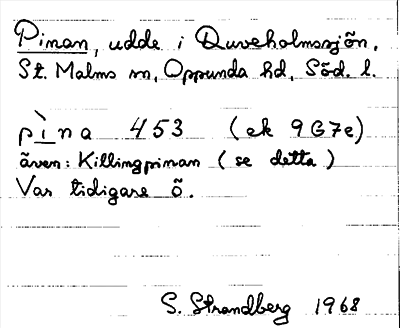 Pinan, udde i Duveholmssjön,
St. Malms sn, Oppunda hd, Söd. l.
pìna 453 (ek 9G7e)
även: Killingpinan (se detta)
Var tidigare ö.
S. Strandberg 1968